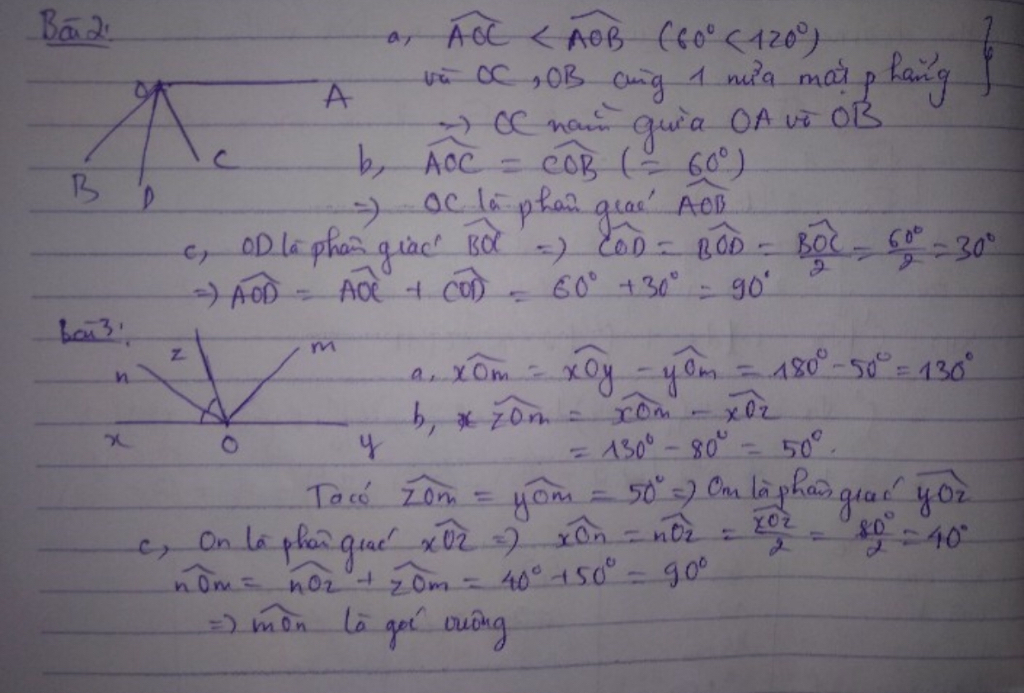 Bài 2:
a, AOC < AOB (60° < 120°)
O A B D C
và OC, OB cùng 1 nửa mặt phẳng
=> OC nằm giữa OA và OB
b, AOC = COB (= 60°)
=> OC là phân giác AOB
c, OD là phân giác BOC => COD = BOD = BOC/2 = 60°/2 = 30°
=> AOD = AOC + COD = 60° + 30° = 90°
Bài 3:
n z m x O y
a, xOm = xOy - yOm = 180° - 50° = 130°
b, zOm = xOm - xOz
= 130° - 80° = 50°.
Ta có zOm = yOm = 50° => Om là phân giác yOz
c, On là phân giác xOz => xOn = nOz = xOz/2 = 80°/2 = 40°
nOm = nOz + zOm = 40° + 50° = 90°
=> mOn là góc vuông